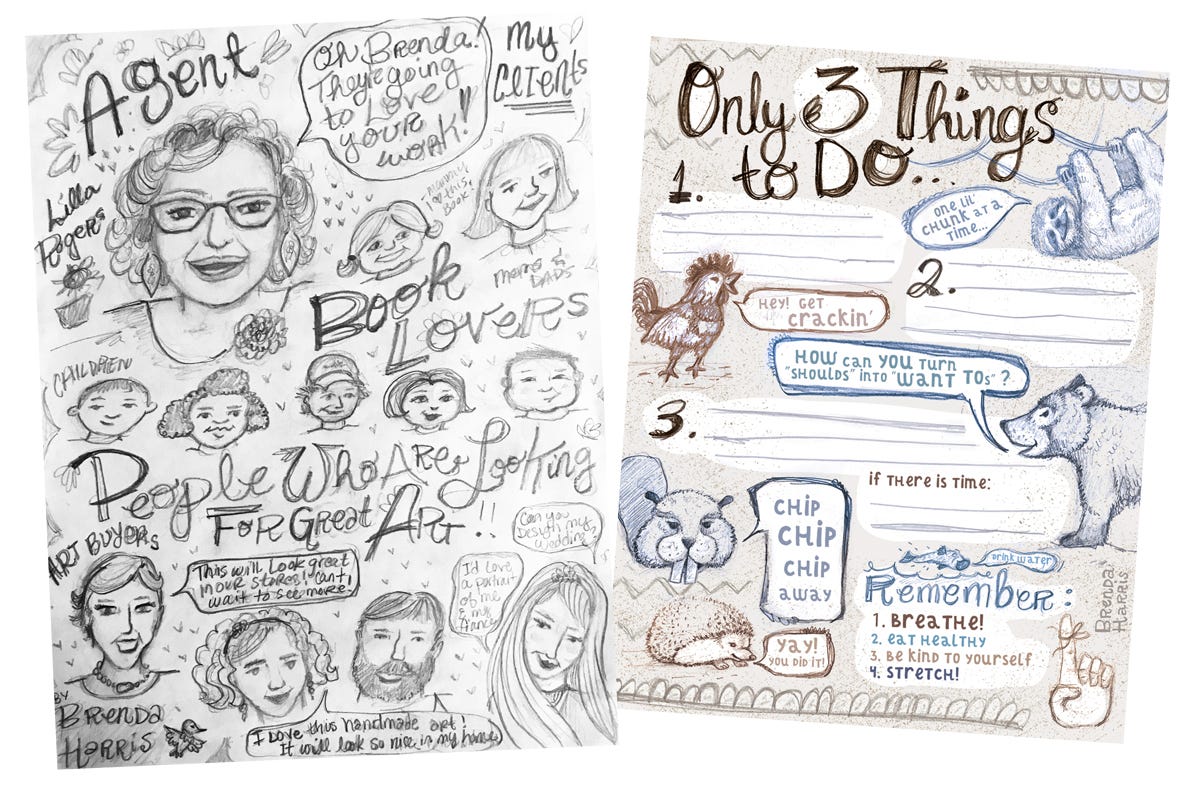 Agent
Oh Brenda!
They're going
to Love
your
work!!
My
Clients
Lilla
Rogers
Mommy
I ♡
this
Book
Moms &
DADS
Book
Lovers
CHILDREN
People Who Are Looking
For Great Art!!
ART BUYERS
This will look great
in our stores! Can't
wait to see more!
Can you
Design my
wedding?
I'd Love
a portrait
of me
& my
fiance
I Love this handmade art!
It will look so nice in my home
BY
BRENDA
HARRIS
Only 3 Things
to Do...
1.
ONE LIL'
CHUNK AT A
TIME...
2.
HEY! GET
crackin'
HOW can YOU Turn
"SHOULDS" INTO "WANT TOs"?
3.
if THere is Time:
CHIP
CHIP
CHIP
away
DRINK WATER
Remember:
1. BREATHE!
2. eaT HeaLTHY
3. Be KIND TO YOURSELF
4. STRETCH!
yay!
YOU DID IT!
Brenda
Harris